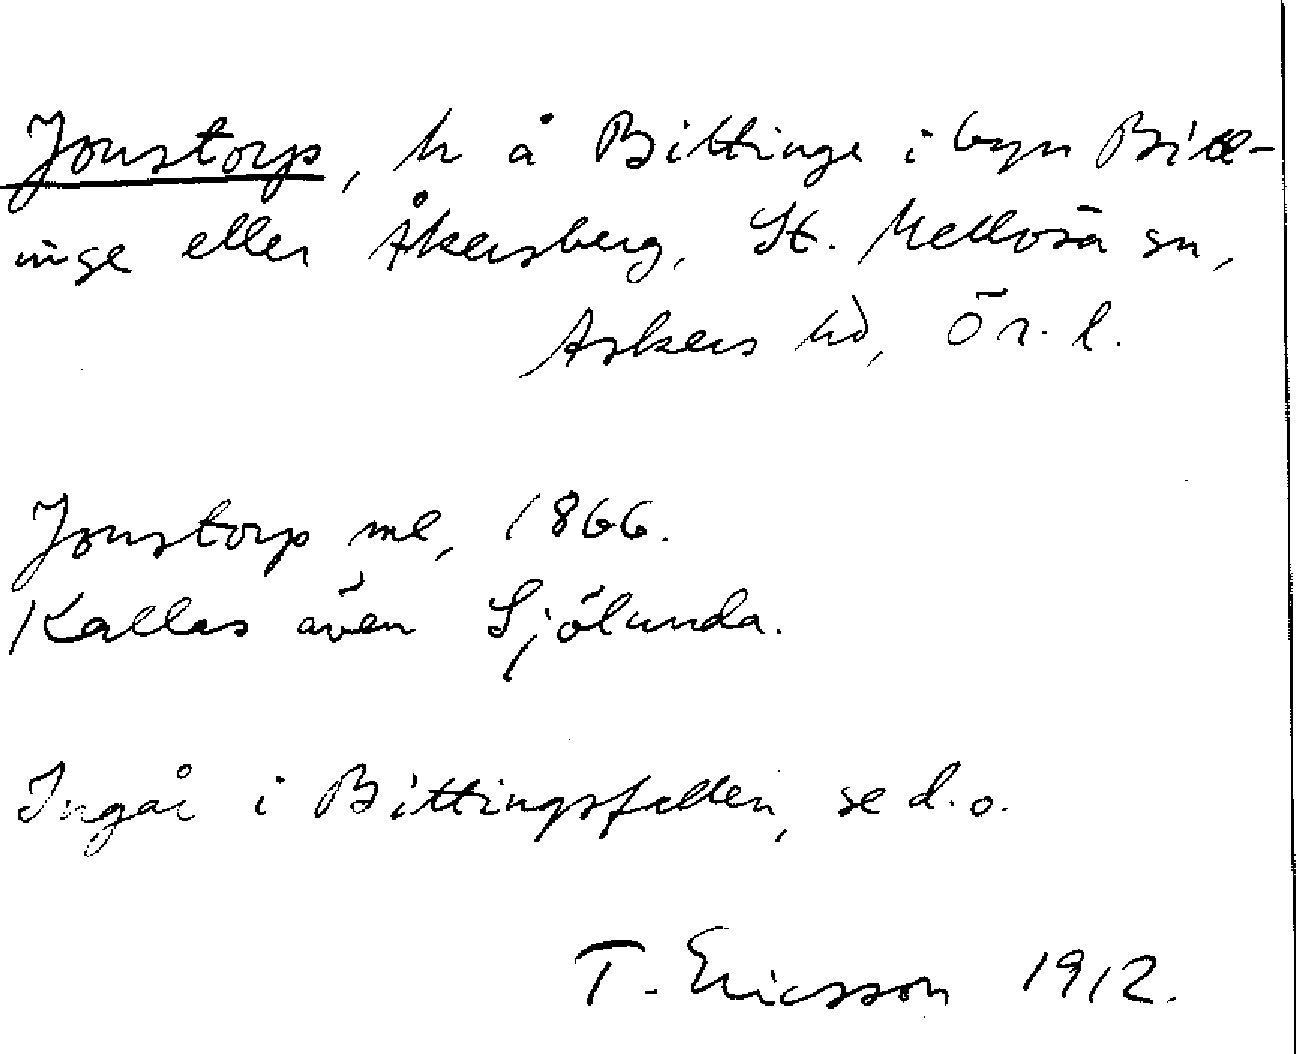 Jonstorp, h å Bittinge i byn Bitt-
inge eller Åkersberg, St. Mellösa sn,
Askers hd, Ör. l.
Jonstorp me, 1866.
Kallas även Sjölunda.
Ingår i Bittingsfallen, se d.o.
T. Ericsson 1912.